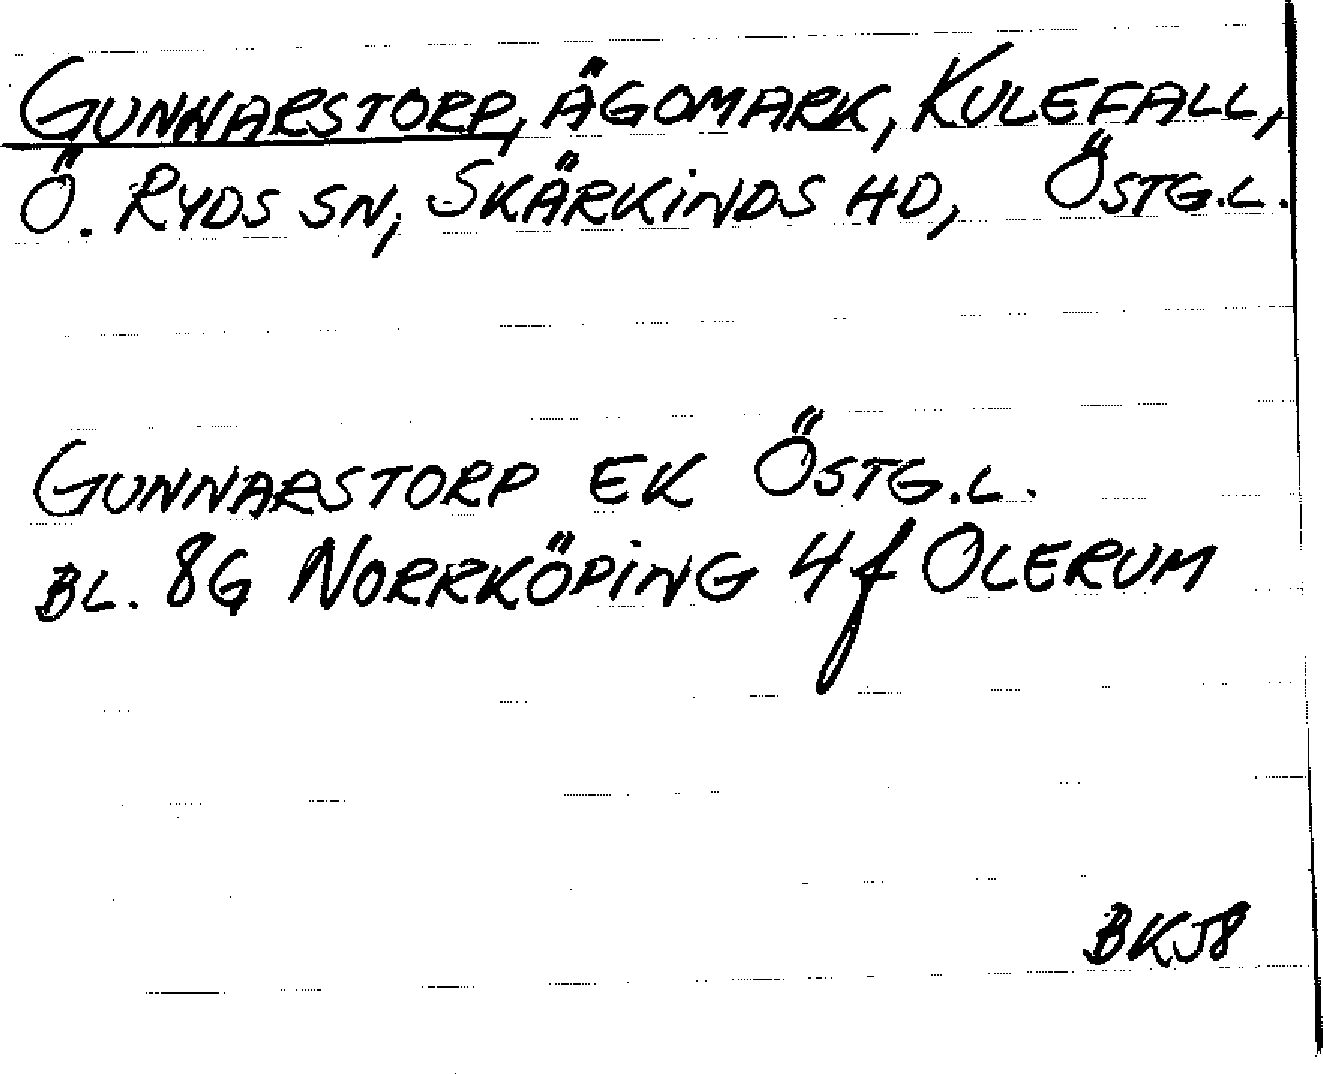 GUNNARSTORP, ÄGOMARK, KULEFALL,
Ö. RYDS SN, SKÄRKINDS HD, ÖSTG.L.
GUNNARSTORP EK ÖSTG.L.
BL. 8G NORRKÖPING 4f OLERUM
BKJ8